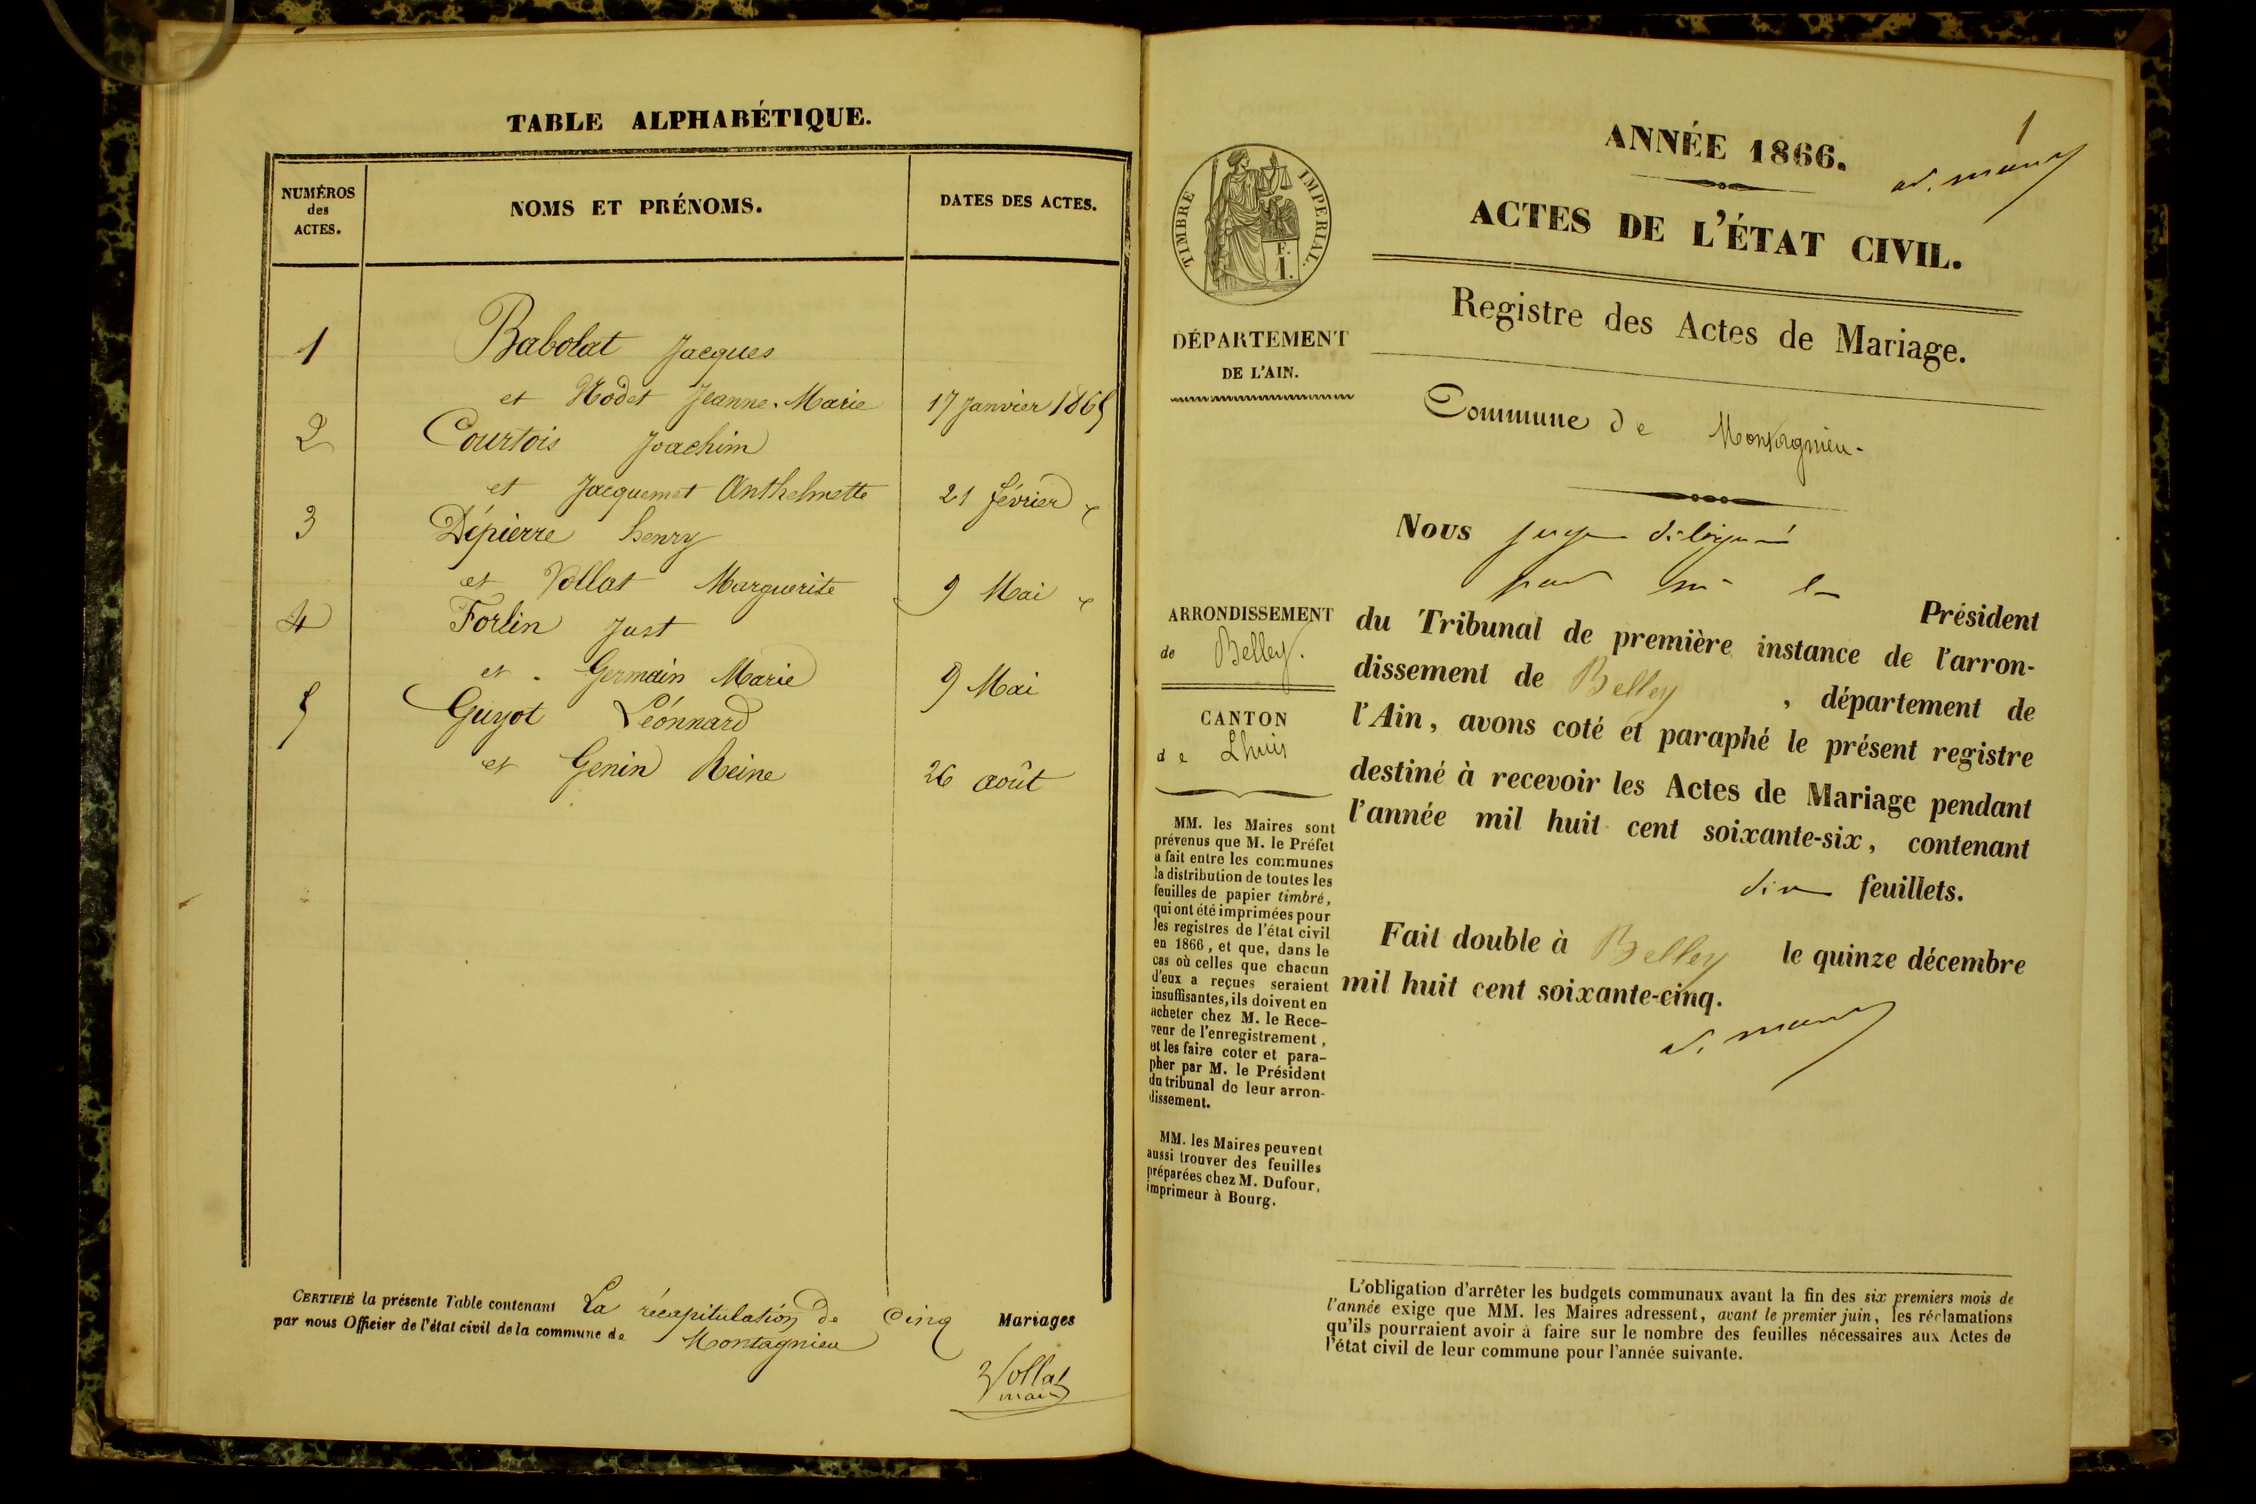 TABLE ALPHABÉTIQUE.
NUMÉROS
des
ACTES.
NOMS ET PRÉNOMS.
DATES DES ACTES.
1 Babolat Jacques
et Nodet Jeanne-Marie 17 Janvier 1865
2 Courtois Joachim
et Jacquemet Anthelmette 21 février
3 Dépierre henry
et Vollat Marguerite 9 Mai
4 Forlin Just
et Germain Marie 9 Mai
5 Guyot Léonnard
et Genin Reine 26 août
CERTIFIÉ la présente Table contenant La récapitulation de Cinq Mariages
par nous Officier de l'état civil de la commune de Montagnieu
Vollat
maire
1
ANNÉE 1866.
ACTES DE L'ÉTAT CIVIL.
TIMBRE IMPERIAL.
F.
1.
Registre des Actes de Mariage.
DÉPARTEMENT
DE L'AIN.
Commune de Montagnieu.
Nous juge délégué
par le Président
du Tribunal de première instance de l'arron-
dissement de Belley, département de
l'Ain, avons coté et paraphé le présent registre
destiné à recevoir les Actes de Mariage pendant
l'année mil huit cent soixante-six, contenant
dix feuillets.
Fait double à Belley le quinze décembre
mil huit cent soixante-cinq.
ARRONDISSEMENT
de Belley.
CANTON
de Lhuis
MM. les Maires sont
prévenus que M. le Préfet
a fait entre les communes
la distribution de toutes les
feuilles de papier timbré,
qui ont été imprimées pour
les registres de l'état civil
en 1866, et que, dans le
cas où celles que chacun
d'eux a reçues seraient
insuffisantes, ils doivent en
acheter chez M. le Rece-
veur de l'enregistrement,
et les faire coter et para-
pher par M. le Président
du tribunal de leur arron-
dissement.
MM. les Maires peuvent
aussi trouver des feuilles
préparées chez M. Dufour,
imprimeur à Bourg.
L'obligation d'arrêter les budgets communaux avant la fin des six premiers mois de
l'année exige que MM. les Maires adressent, avant le premier juin, les réclamations
qu'ils pourraient avoir à faire sur le nombre des feuilles nécessaires aux Actes de
l'état civil de leur commune pour l'année suivante.